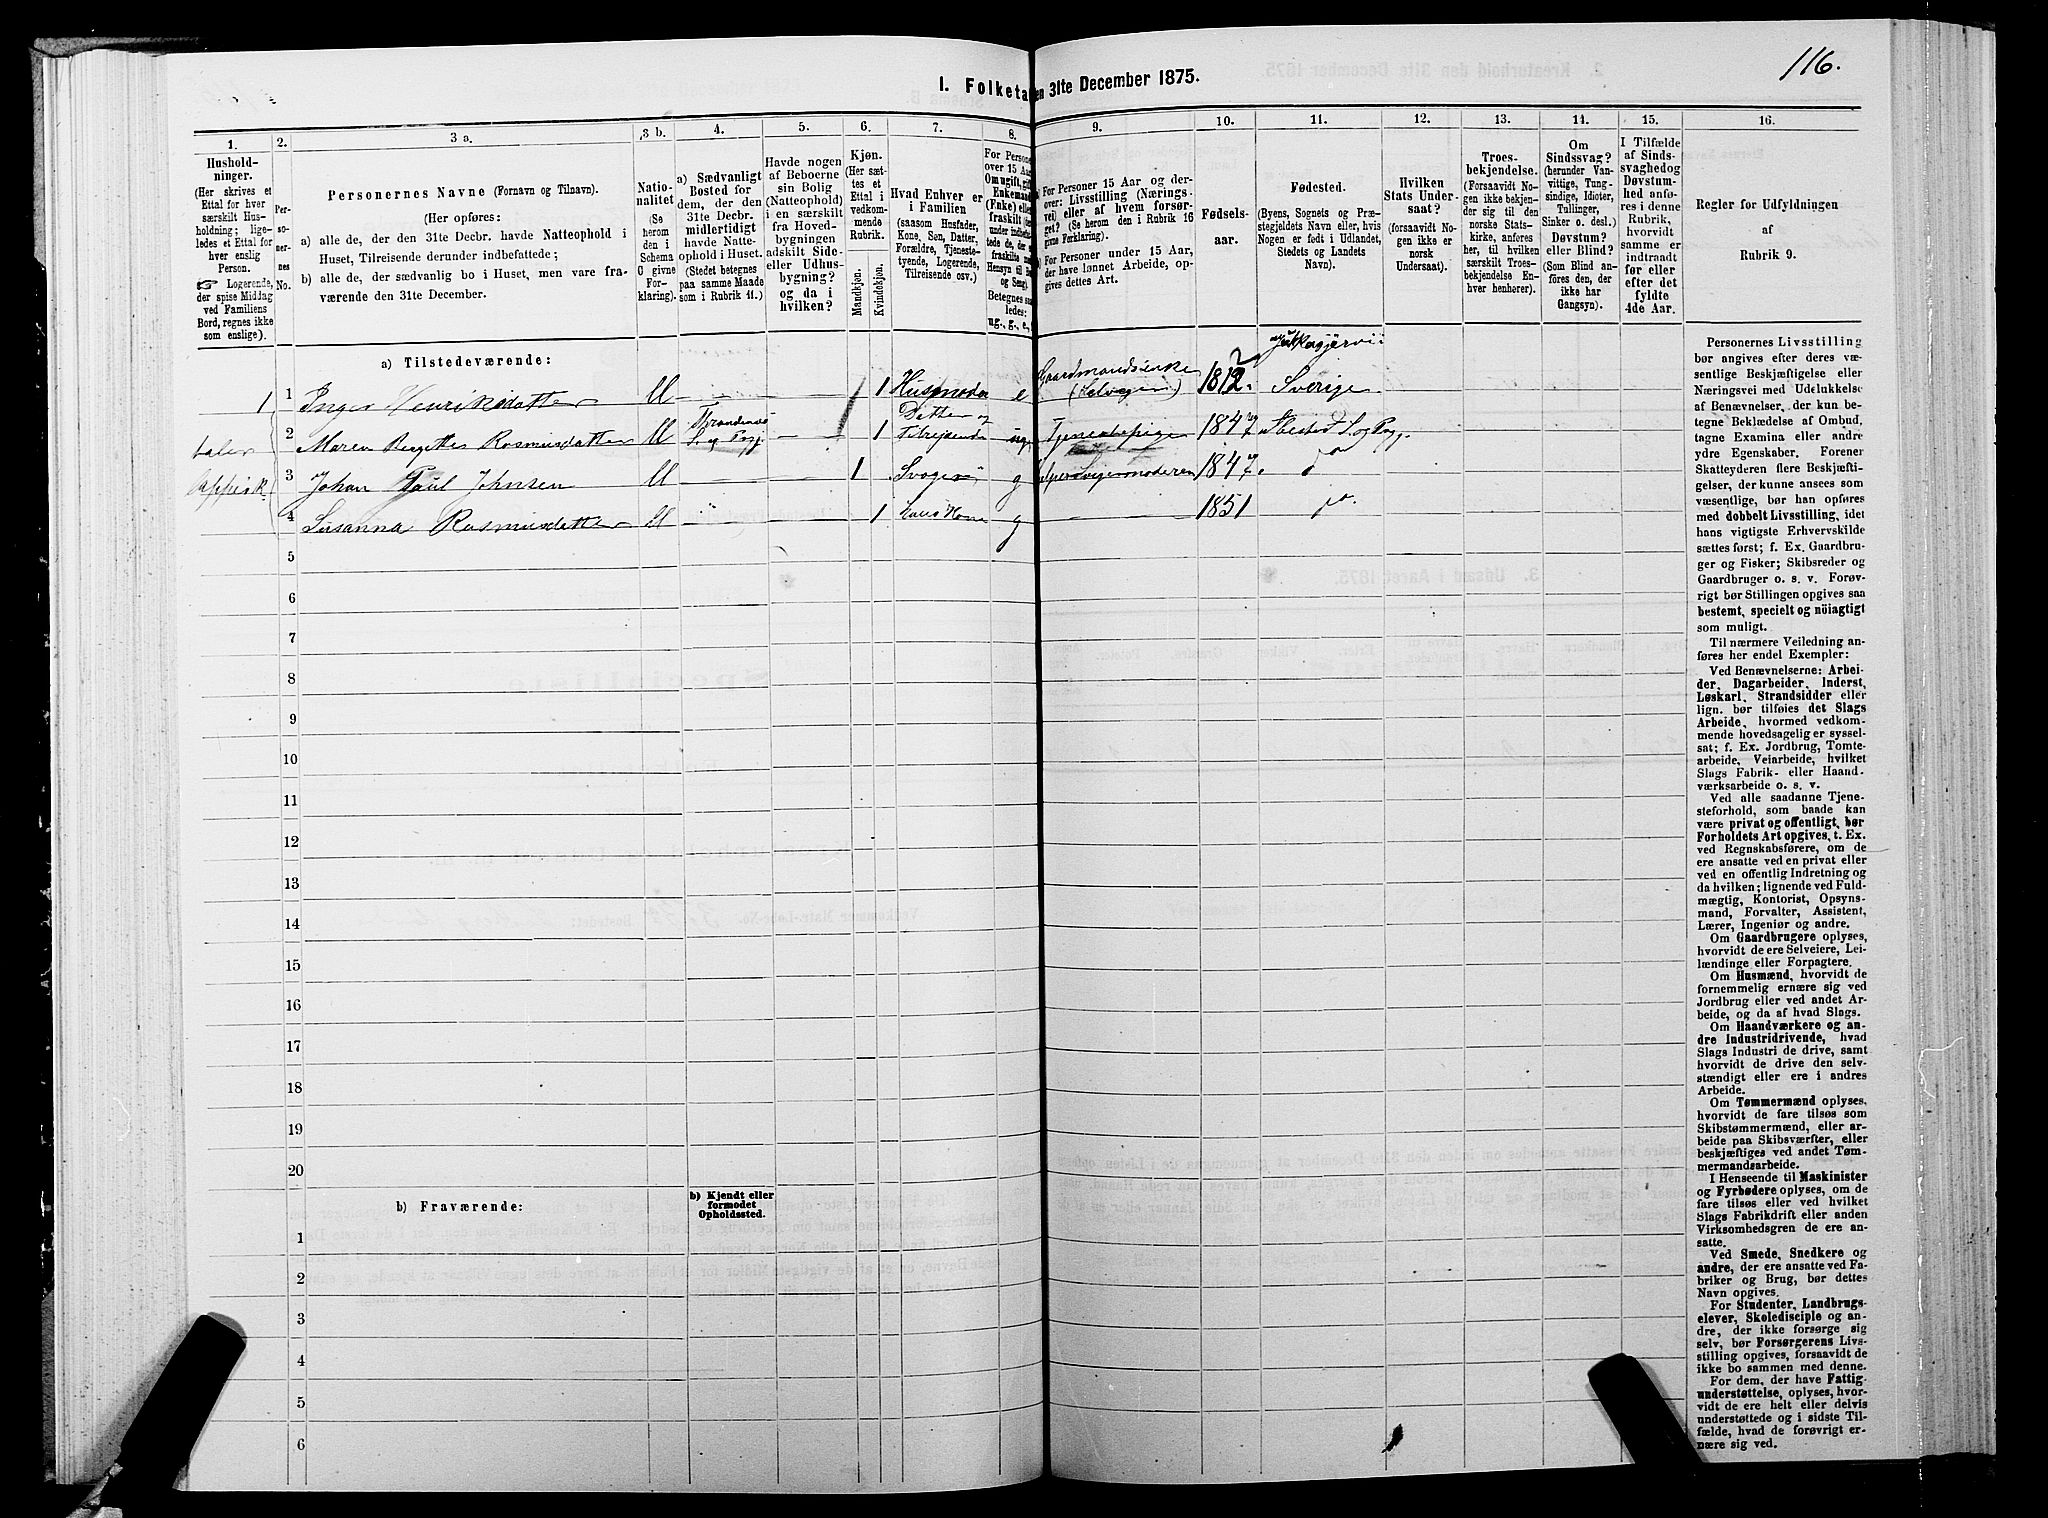 116.
I. Folketa en 31te December 1875.
1. 2. 3 a. 3 b. 4. 5. 6. 7. 8. 9. 10. 11. 12. 13. 14. 15. 16.
Hushold-
ninger.
(Her skrives et
Ettal for hver
særskilt Hus-
holdning; lige-
ledes et Ettal for
hver enslig
Person.
☞ Logerende,
der spise Middag
ved Familiens
Bord, regnes ikke
som enslige).
Per-
so-
ner-
nes
No.
Personernes Navne (Fornavn og Tilnavn).
(Her opføres:
a) alle de, der den 31te Decbr. havde Natteophold i
Huset, Tilreisende derunder indbefattede;
b) alle de, der sædvanlig bo i Huset, men vare fra-
værende den 31te December.
Natio-
nalitet
(Se
herom
den i
Schema
O givne
For-
klaring).
a) Sædvanligt
Bosted for
dem, der den
31te Decbr.
midlertidigt
havde Natte-
ophold i Huset.
(Stedet betegnes
paa samme Maade
som i Rubrik 11.)
Havde nogen
af Beboerne
sin Bolig
(Natteophold)
i en særskilt
fra Hoved-
bygningen
adskilt Side-
eller Udhus-
bygning?
og da i
hvilken?
Kjøn.
(Her sæt-
tes et
Ettal i
vedkom-
mende
Rubrik.
Mandkjøn.
Kvindekjøn.
Hvad Enhver er
i Familien
(saasom Husfader,
Kone, Søn, Datter,
Forældre, Tjeneste-
tyende, Logerende,
Tilreisende osv.)
For Persone
over 15 Aar
Om ugift, gift
Enkemand
(Enke) eller
fraskilt
Betegnes saa
ledes:
ug., g., e.,
a) For Personer 15 Aar og der-
over: Livsstilling (Nærings-
vei) eller af hvem forsør-
get? (Se herom den i Rubrik 16
givne Forklaring).
b) For Personer under 15 Aar,
der have lønnet Arbeide, op-
gives dettes Art.
Fødsels-
aar.
Fødested.
(Byens, Sognets og Præ-
stegjeldets Navn eller, hvis
Nogen er født i Udlandet,
Stedets og Landets
Navn).
Hvilken
Stats Under-
saat?
(forsaavidt No-
gen ikke er
norsk
Undersaat).
Troes-
bekjendelse.
(Forsaavidt No-
gen ikke bekjen-
der sig til den
norske Stats-
kirke, anføres
her, til hvilken
særskilt Troes-
bekjendelse En-
hver henhører).
Om
Sindssvag?
(herunder Van-
vittige, Tung-
sindige, Idioter,
Tullinger,
Sinker o. desl.)
Døvstum?
eller Blind?
(Som Blind an-
føres den, der
ikke har
Gangsyn).
I Tilfælde
af Sinds-
svaghed og
Døvstum-
hed anfø-
res i denne
Rubrik,
hvorvidt
samme er
indtraadt
før eller
efter det
fyldte
4de Aar.
Regler for Udfyldningen
af
Rubrik 9.
a) Tilstedeværende:
Jukkasjervi
1 1 Inger Henriksdatter U 1 Husmoder e Gaardmandsenke (Selveger) 1812. Sverige
2 Maren Rasmusdatter U S. og Pgj. 1 Datter og Tilreisende ug Tjenestepige 1847 Ibestad S. og Pgj.
3 Johan Paul Johnsen U 1 Svoger g Svigermoderen 1847. do
4 Susanna Rasmusdatter U " 1 hans Kone g 1851 do.
5
6
7
8
9
10
11
12
13
14
15
16
17
18
19
20
b) Fraværende:
b) Kjendt eller
formodet
Opholdssted.
1
2
3
4
5
6
Personernes Livsstilling
bør angives efter deres væ-
sentlige Beskjæftigelse eller
Næringsvei med Udelukkelse
af Benævnelser, der kun be-
tegne Beklædelse af Ombud,
tagne Examina eller andre
ydre Egenskaber. Forener
Skatteyderen flere Beskjæfti-
gelser, der kunne ansees som
væsentlige, bør han opføres
med dobbelt Livsstilling, idet
hans vigtigste Erhvervskilde
sættes først; f. Ex. Gaardbru-
ger og Fisker; Skibsreder og
Gaardbruger o. s. v. Forøv-
rigt bør Stillingen opgives saa
bestemt, specielt og nöiagtigt
som muligt.
Til nærmere Veiledning an-
føres her endel Exempler:
Ved Benævnelserne: Arbei-
der, Dagarbeider, Inderst,
Løskarl, Strandsidder eller
lign. bør tilføies det Slags
Arbeide, hvormed vedkom-
mende hovedsagelig er syssel-
sat; f. Ex. Jordbrug, Tomte-
arbeide, Veiarbeide, hvilket
Slags Fabrik- eller Haand-
værksarbeide o. s. v.
Ved alle saadanne Tjene-
steforhold, som baade kan
være privat og offentligt, bør
Forholdets Art opgives, t. Ex.
ved Regnskabsførere, om de
ere ansatte ved en privat eller
ved en offentlig Indretning og
da hvilken; lignende ved Fuld-
mægtig, Kontorist, Opsyns-
mand, Forvalter, Assistent,
Lærer, Ingeniør og andre.
Om Gaardbrugere oplyses,
hvorvidt de ere Selveiere, Lei-
lændinge eller Forpagtere.
Om Husmænd, hvorvidt de
fornemmelig ernære sig ved
Jordbrug eller ved andet Ar-
beide, og da af hvad Slags.
Om Haandværkere og an-
dre Industridrivende, hvad
Slags Industri de drive, samt
hvorvidt de drive den selv-
stændigt eller ere i andres
Arbeide.
Om Tømmermænd oplyses,
hvorvidt de fare tilsøs som
Skibstømmermænd, eller ar-
beide paa Skibsværfter, eller
beskjæftiges ved andet Tøm-
mermandsarbeide.
I Henseende til Maskinister
og Fyrbødere oplyses, om de
fare tilsøs eller ved hvilket
Slags Fabrikdrift eller anden
Virksomhedsgren de ere an-
satte.
Ved Smede, Snedkere og
andre, der ere ansatte ved Fa-
briker og Brug, bør dettes
Navn opgives.
For Studenter, Landbrugs-
elever, Skoledisciple og an-
dre, der ikke forsørge sig
selv, bør Forsørgerens Livs-
stilling opgives, forsaavidt de
ikke bo sammen med denne.
For dem, der have Fattig-
understøttelse, oplyses, hvor-
vidt de ere helt eller delvis
understøttede og i sidste Til-
fælde, hvad de forøvrigt er-
nære sig ved.